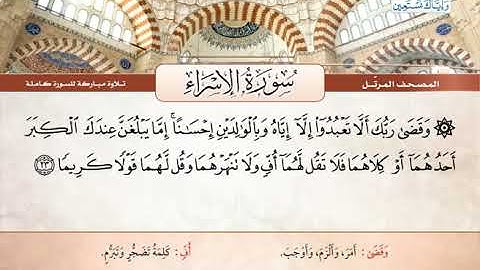 وإياك نستعين
المصحف المرتّل
سُورَةُ الإِسْرَاءِ
تلاوة مباركة للسورة كاملة
۞ وَقَضَىٰ رَبُّكَ أَلَّا تَعْبُدُوٓا۟ إِلَّآ إِيَّاهُ وَبِٱلْوَٰلِدَيْنِ إِحْسَٰنًا ۚ إِمَّا يَبْلُغَنَّ عِندَكَ ٱلْكِبَرَ
أَحَدُهُمَآ أَوْ كِلَاهُمَا فَلَا تَقُل لَّهُمَآ أُفٍّ وَلَا تَنْهَرْهُمَا وَقُل لَّهُمَا قَوْلًا كَرِيمًا ۝٢٣
وَقَضَىٰ: أَمَرَ، وَأَلْزَمَ، وَأَوْجَبَ.
أُفٍّ: كَلِمَةُ تَضَجُّرٍ وَتَبَرُّمٍ.